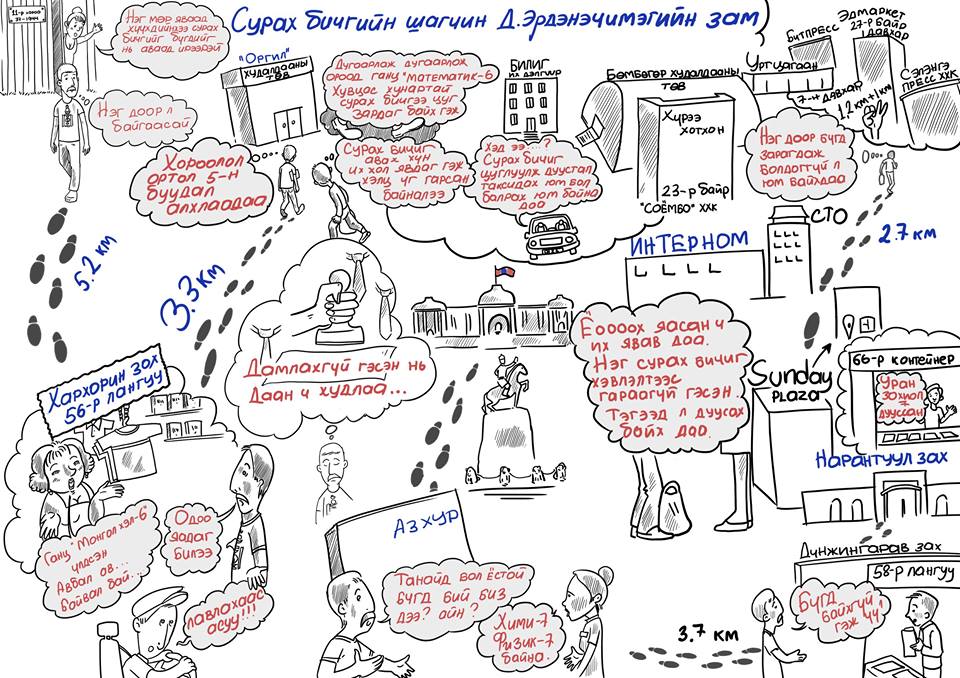 Сурах бичгийн шагчин Д.Эрдэнэчимэгийн зам
"11-р хороо"
Нэг мөр яваад
хүүхдийнхээ сурах
бичгийг бүгдийг
нь аваад ирээрэй
Нэг доор л
байгаасай
"Оргил"
ХУДАЛДААНЫ
ТӨВ
Хороолол
ортол 5-н
буудал
алхлаадаа
Дугаарлаж дугаарлаж
ороод ганц "Математик-6
Хувцас хунартай
сурах бичгээ цуг
зардаг байх гэж
Сурах бичиг
авах хүн
их хол явдаг гэж
хэлц үг гарсан
байналээ
БИЛИГ
ИХ ДЭЛГҮҮР
Хэд ээ...?
Сурах бичиг
цуглуулж дуустал
таксидах юм бол
балрах юм байна
даа
Бөмбөгөр худалдааны
төв
Хүрээ
хотхон
23-р байр
"СОЁМБО" ХХК
Уртцагаан
7-н давхар
БИТПРЕСС
Эдмаркет
27-р байр
1 давхар
1.2 км + 1 км
СЭЛЭНГЭ
ПРЕСС ХХК
Нэг доор бүгд
зарагдаж
болдоггүй л
юм байхдаа
5.2 км
3.3 км
2.7 км
Дамлахгүй гэсэн нь
Даан ч худлаа...
ИНТЕРНОМ
СТО
Ёоооох яасан ч
их явав даа.
Нэг сурах бичиг
хэвлэлтээс
гараагүй гэсэн.
Тэгээд л дуусах
байх даа.
Sunday
PLAZA
66-р контейнер
Уран
зохиол
7
дууссан
Нарантуул зах
Хархорин зах
56-р лангуу
Ганц "Монгол хэл-6"
үлдсэн
Авбал ав...
Байвал бай...
Одоо
яадаг
билээ
лавлахаас
асуу!!!
АЗ ХУР
Танайд бол ёстой
бүгд бий биз
дээ? айн?
Хими-7
Физик-7
байна.
3.7 км
Дүнжингарав зах
58-р лангуу
Бүгд
байхгүй
гэж үү!